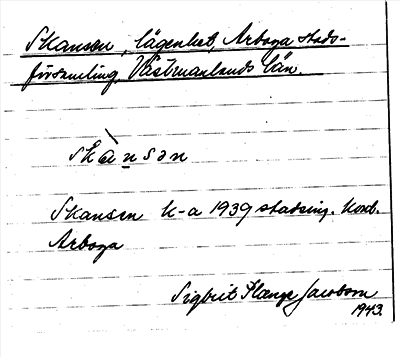 Skansen, lägenhet, Arboga stads-
församling, Västmanlands län.
skànsən
Skansen k-a 1939 stadsing. kont.
Arboga
Sigbrit Plænge Jacobson
1943.